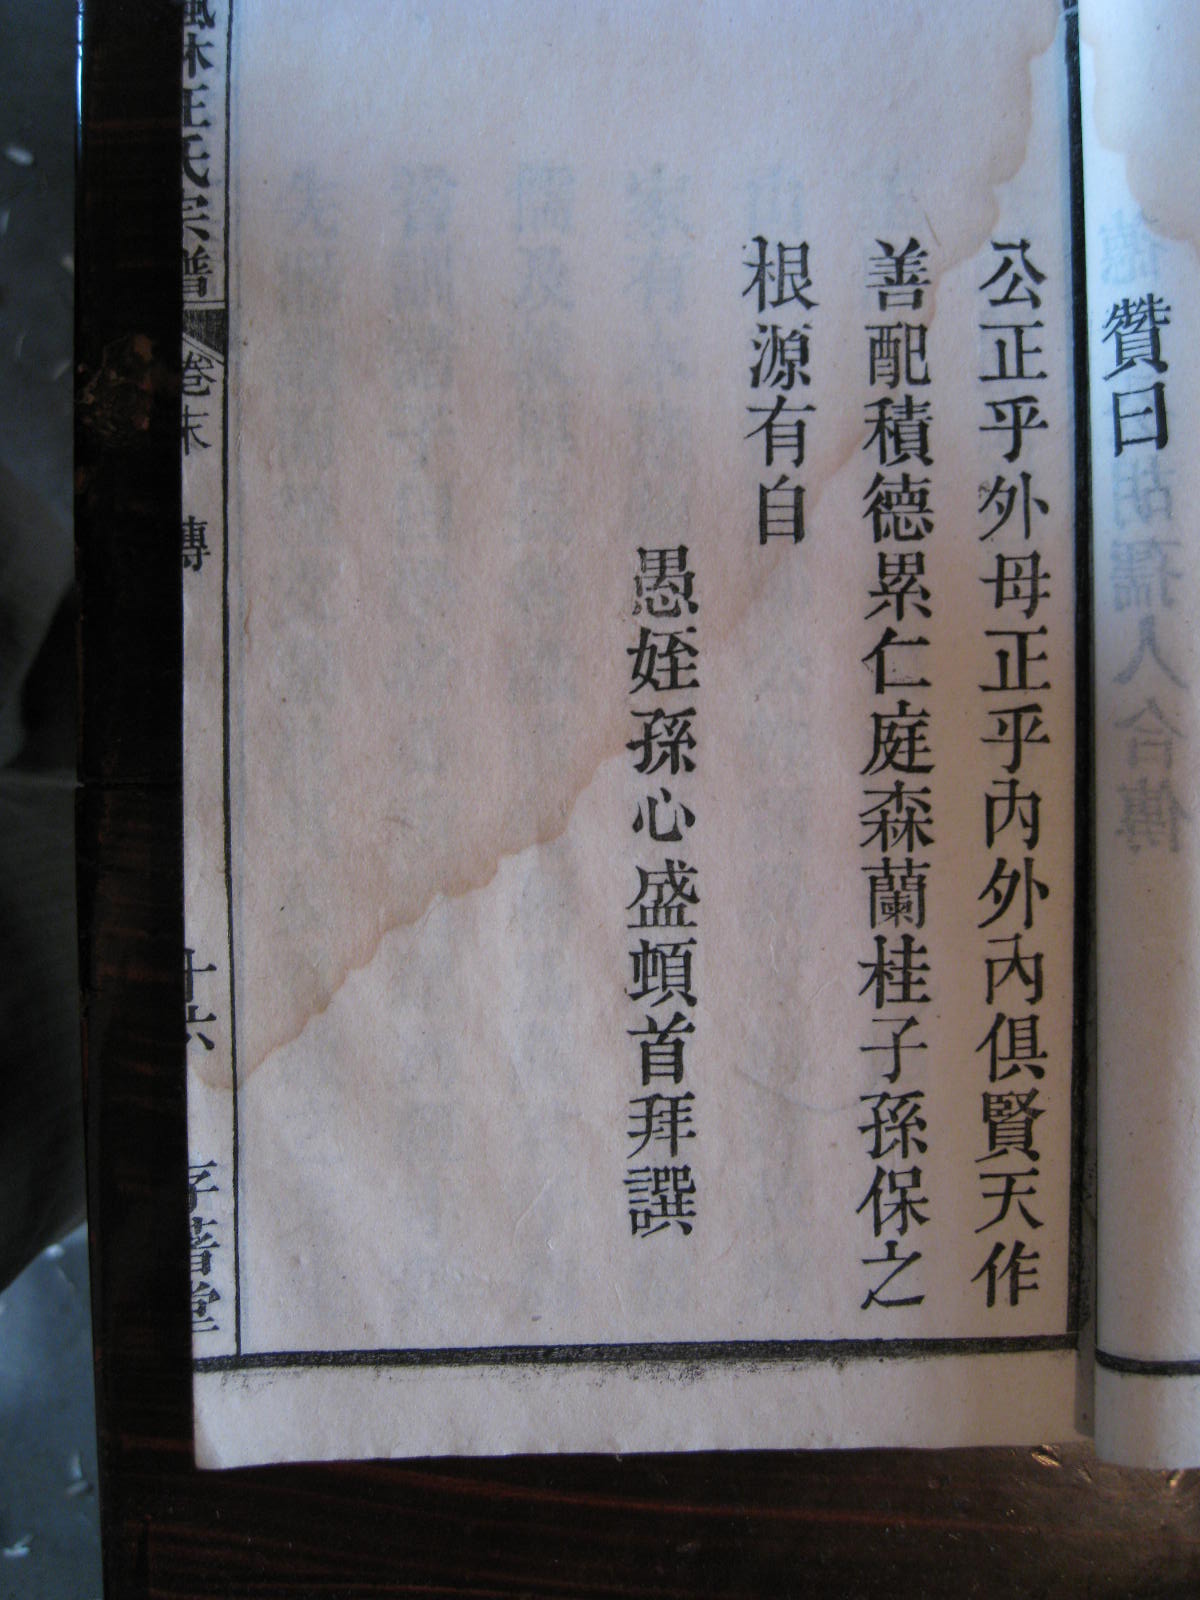 贊曰
公正乎外母正乎內外內俱賢天作
善配積德累仁庭森蘭桂子孫保之
根源有自
愚姪孫心盛頓首拜譔
林王氏宗譜
卷末
傳
十六
著堂